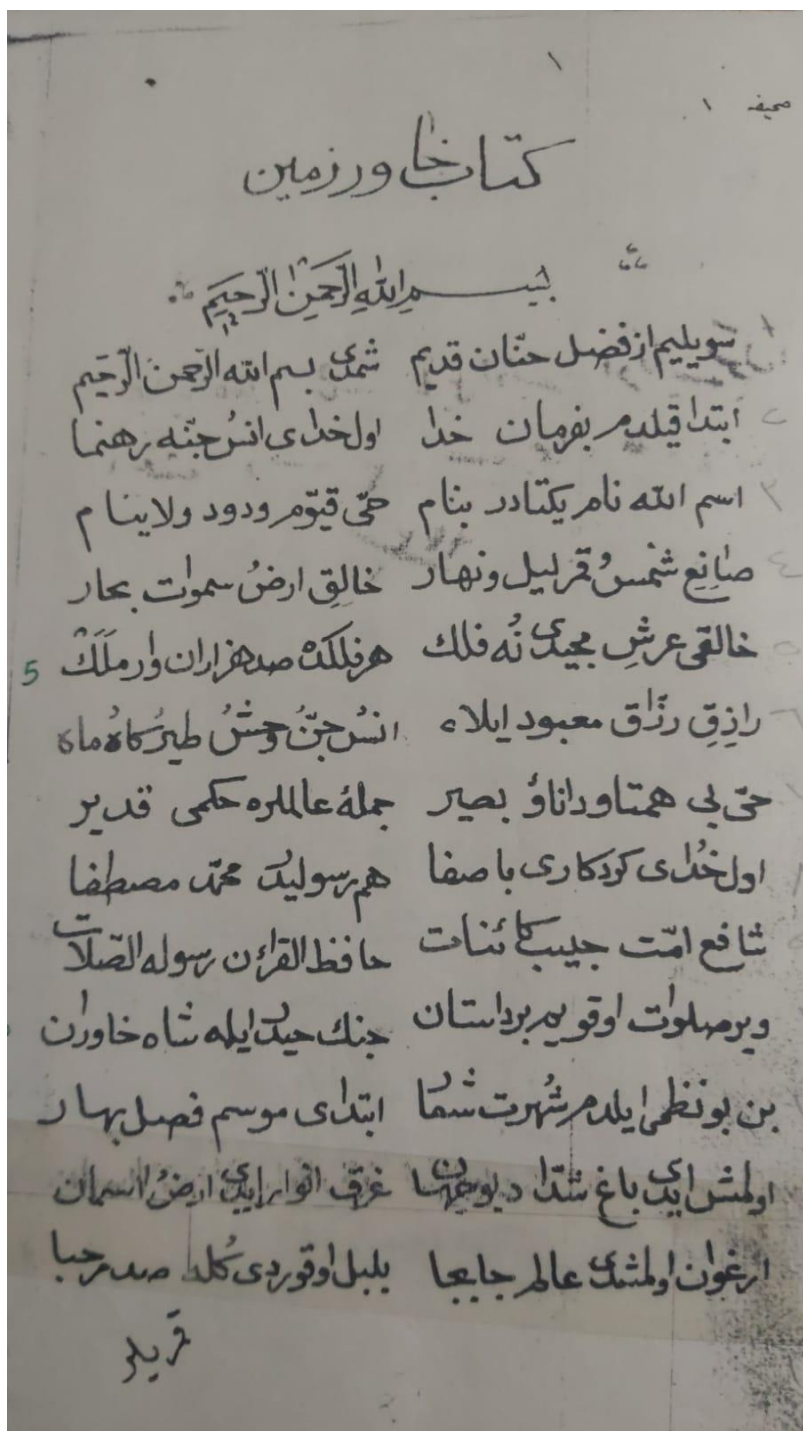 ١
صحيفه ١
كتاب خاورزمين
بِسْمِ اللهِ الرَّحْمٰنِ الرَّحِيمِ
١ سويليم از فضل حنّان قديم شمدى بسم الله الرّحمن الرّحيم
٢ ابتدا قيلدم بفرمان خدا اول خداى انسُ جنّه رهنما
٣ اسم الله نام يكتادر بنام حىّ قيّوم ودود ولاينام
٤ صانِعِ شمسُ قمر ليل ونهار خالقِ ارضُ سموات بحار
5 خالقى عرشِ مجيدى نُه فلك هر فلكده صد هزاران وار مَلَكْ
٦ رازِقِ رزّاق معبود ايلاه انسُ جنُّ وحشُ طيرُ كاهُ ماه
حىّ بى همتا ودانا وُ بصير جملۀ عالملره حكمى قدير
اول خُداى كردكارى باصفا هم رسوليدر محمّد مصطفا
شافع امّت حبيب كائنات حافظ القرائن رسوله الصّلات
وير صلوات اوقويم بر داستان جنك حيدر ايله شاه خاوران
بن بو نظمى ايلدم شُهرت شعار ابتداى موسم فصل بهار
اولمش ايدى باغ شدا جهان غرق انوار ايدى ارضُ اسمان
ارغوان اولمشدى عالم جابجا بلبل اوقوردى كُلدا صد مرحبا